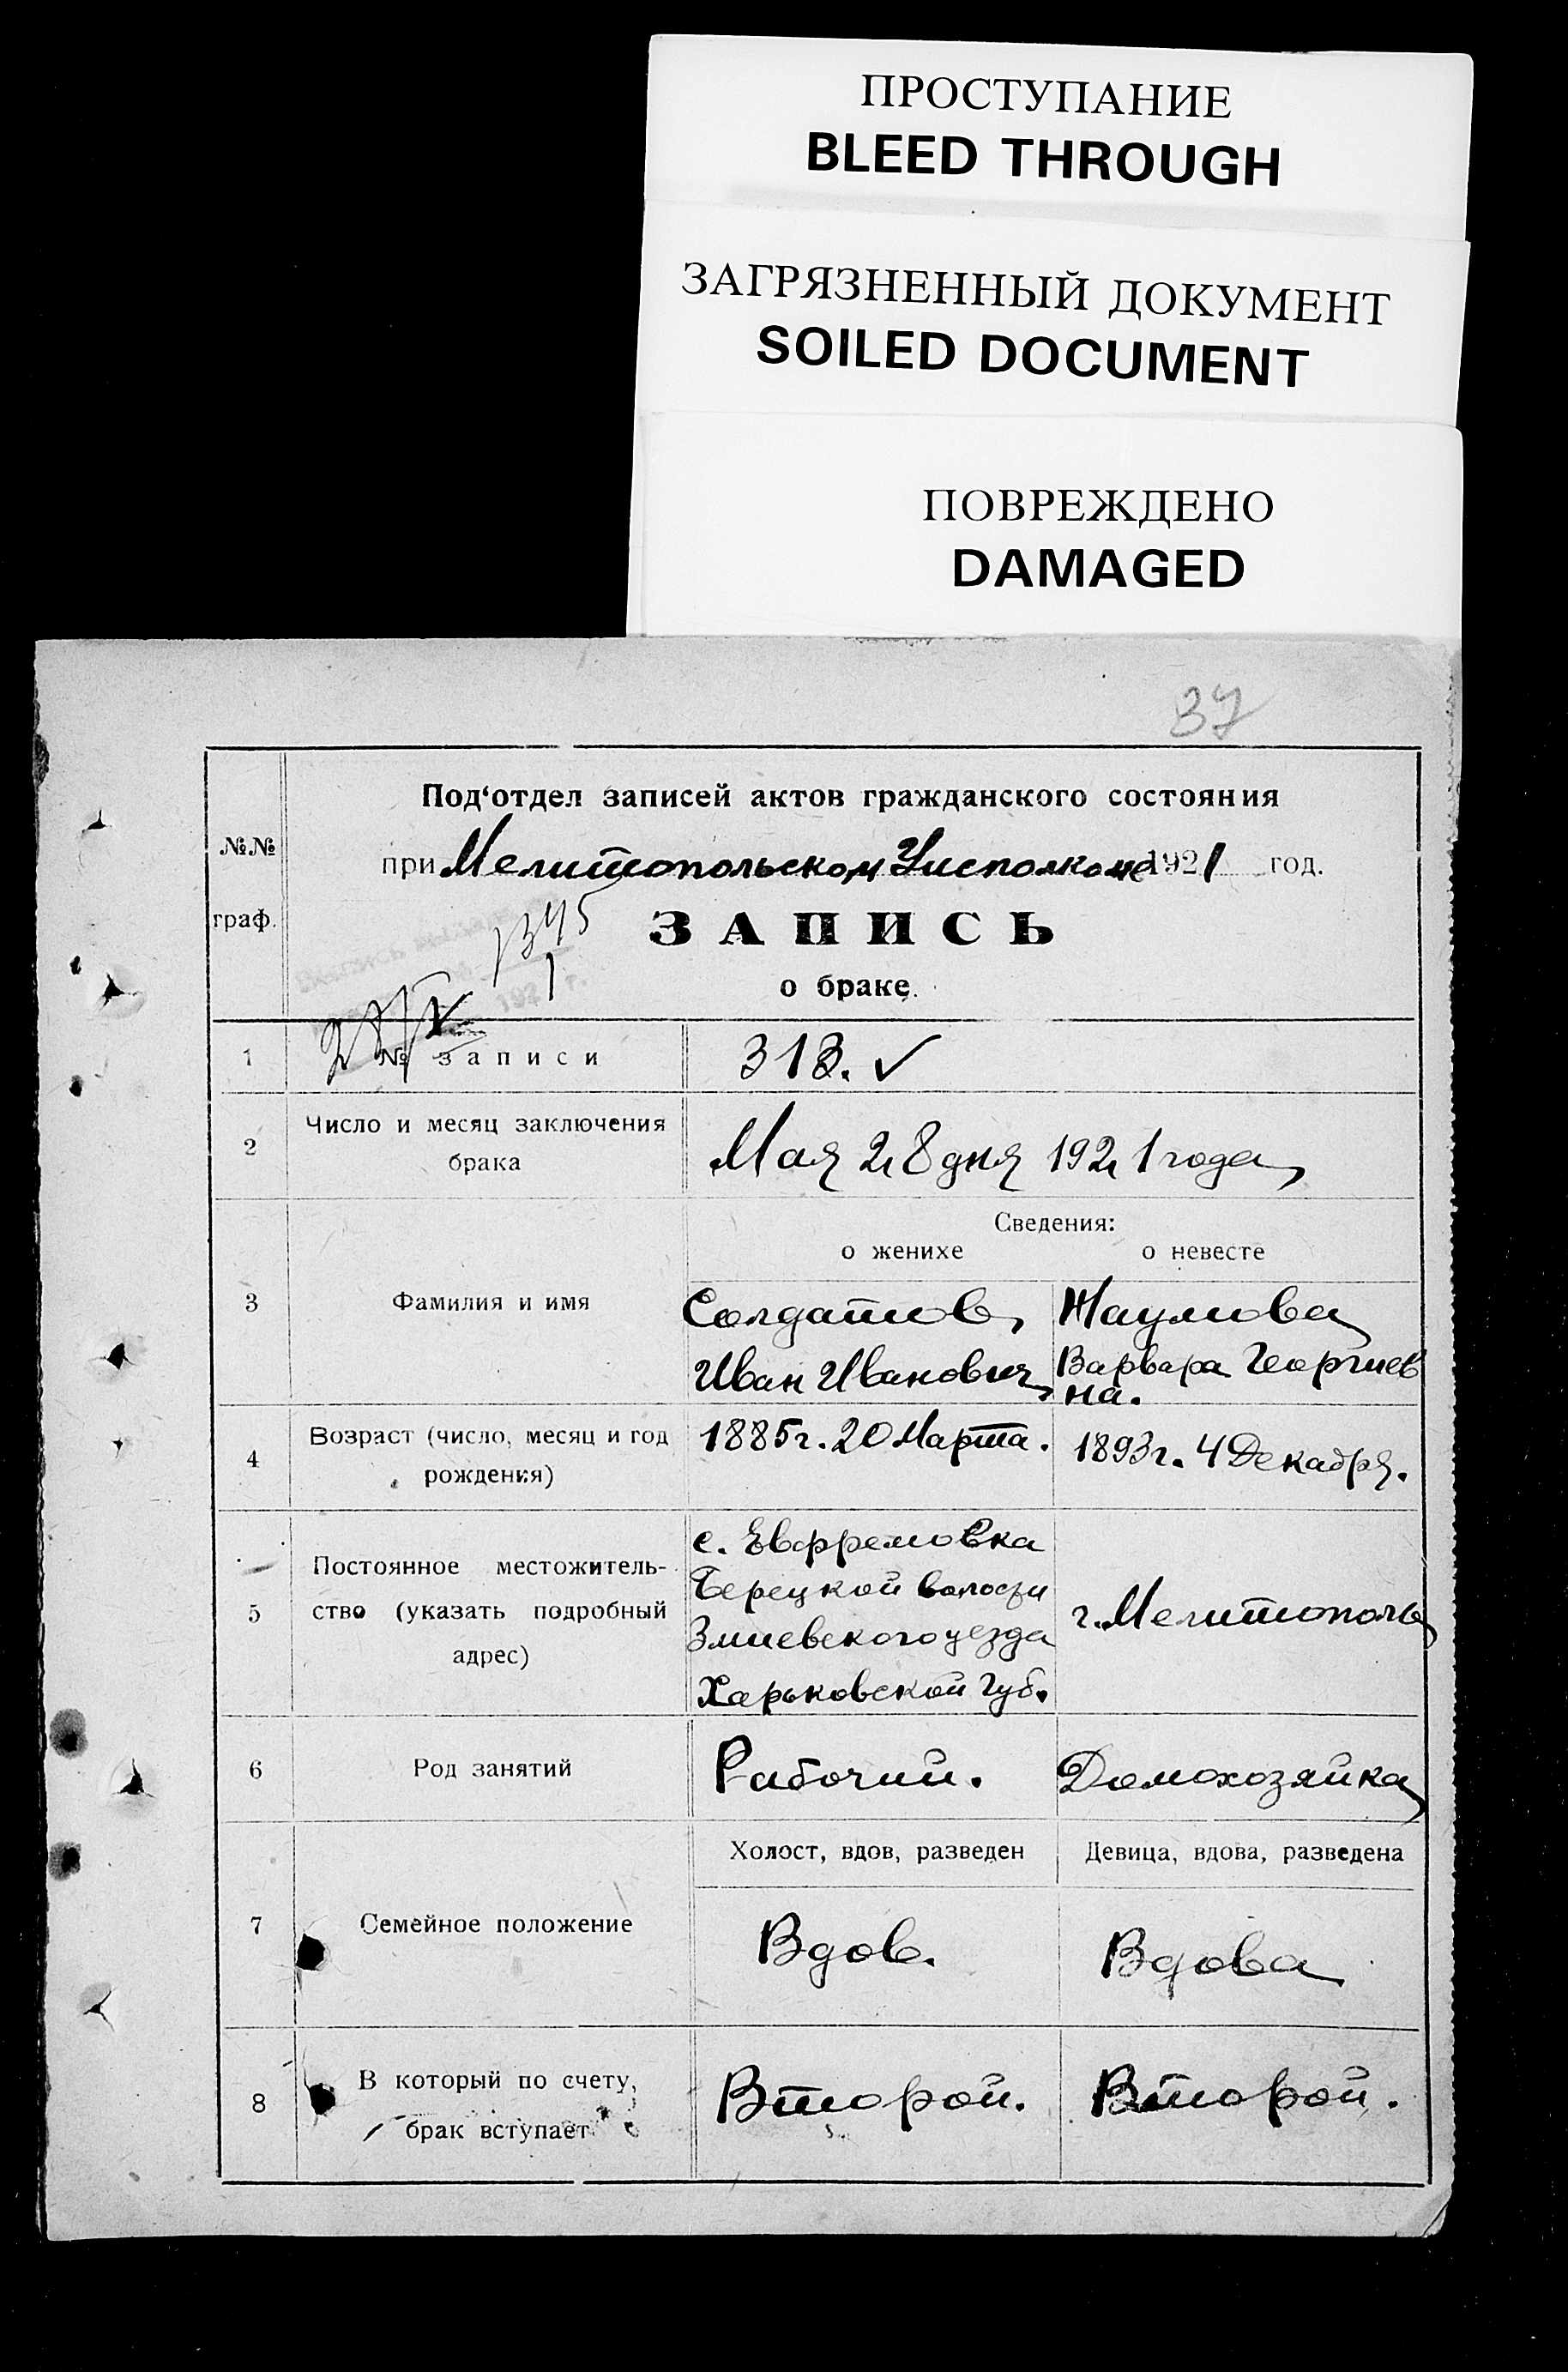 ПРОСТУПАНИЕ
BLEED THROUGH
ЗАГРЯЗНЕННЫЙ ДОКУМЕНТ
SOILED DOCUMENT
ПОВРЕЖДЕНО
DAMAGED
37
Под'отдел записей актов гражданского состояния
№№ при Мелитопольском Уисполкоме 1921 год.
граф. ЗАПИСЬ
1345
1
192 г.
о браке.
1 № записи 313. ✓
2 Число и месяц заключения
брака
Мая 28 дня 1921 года
Сведения:
о женихе о невесте
3 Фамилия и имя
Солдатов, Жаумова
Иван Иванович, Варвара Георгиев
на.
4 Возраст (число, месяц и год
рождения)
1885г. 20 Марта. 1893г. 4 Декабря.
5 Постоянное местожитель-
ство (указать подробный
адрес)
с. Евфремовка
Берецкой волости
Змиевского уезда
Харьковской Губ.
г. Мелитополь
6 Род занятий Рабочий. Домохозяйка
Холост, вдов, разведен Девица, вдова, разведена
7 Семейное положение Вдов. Вдова
8 В который по счету,
брак вступает
Второй. Второй.